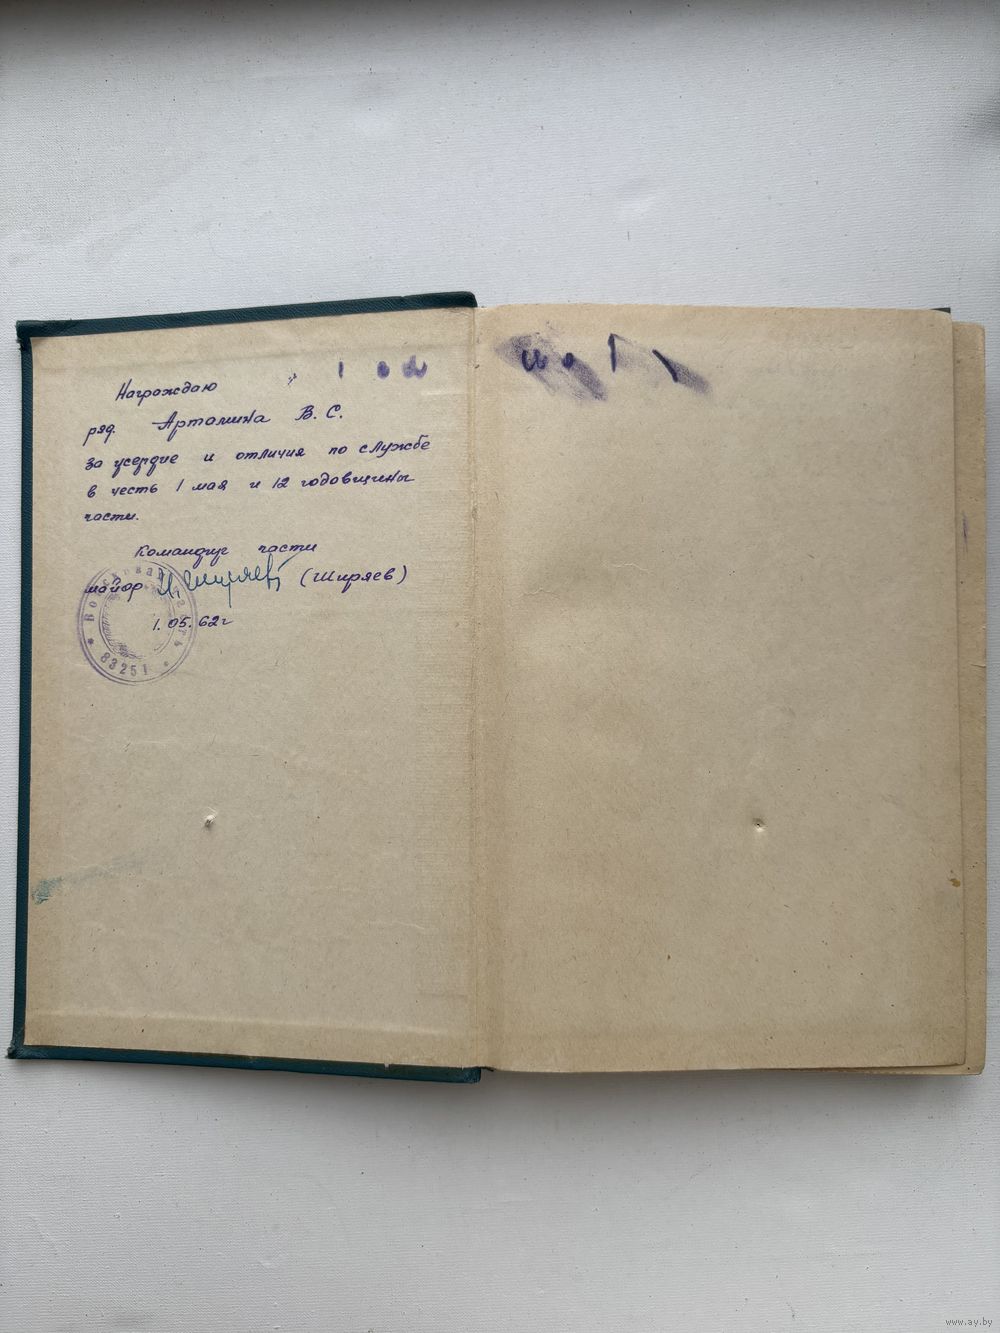 Награждаю
ряд. Артамина В. С.
за усердие и отличия по службе
в честь 1 мая и 12 годовщины
части.
Командир части
майор (Ширяев)
1.05.62г
Войсковая часть
83251
www.ay.by